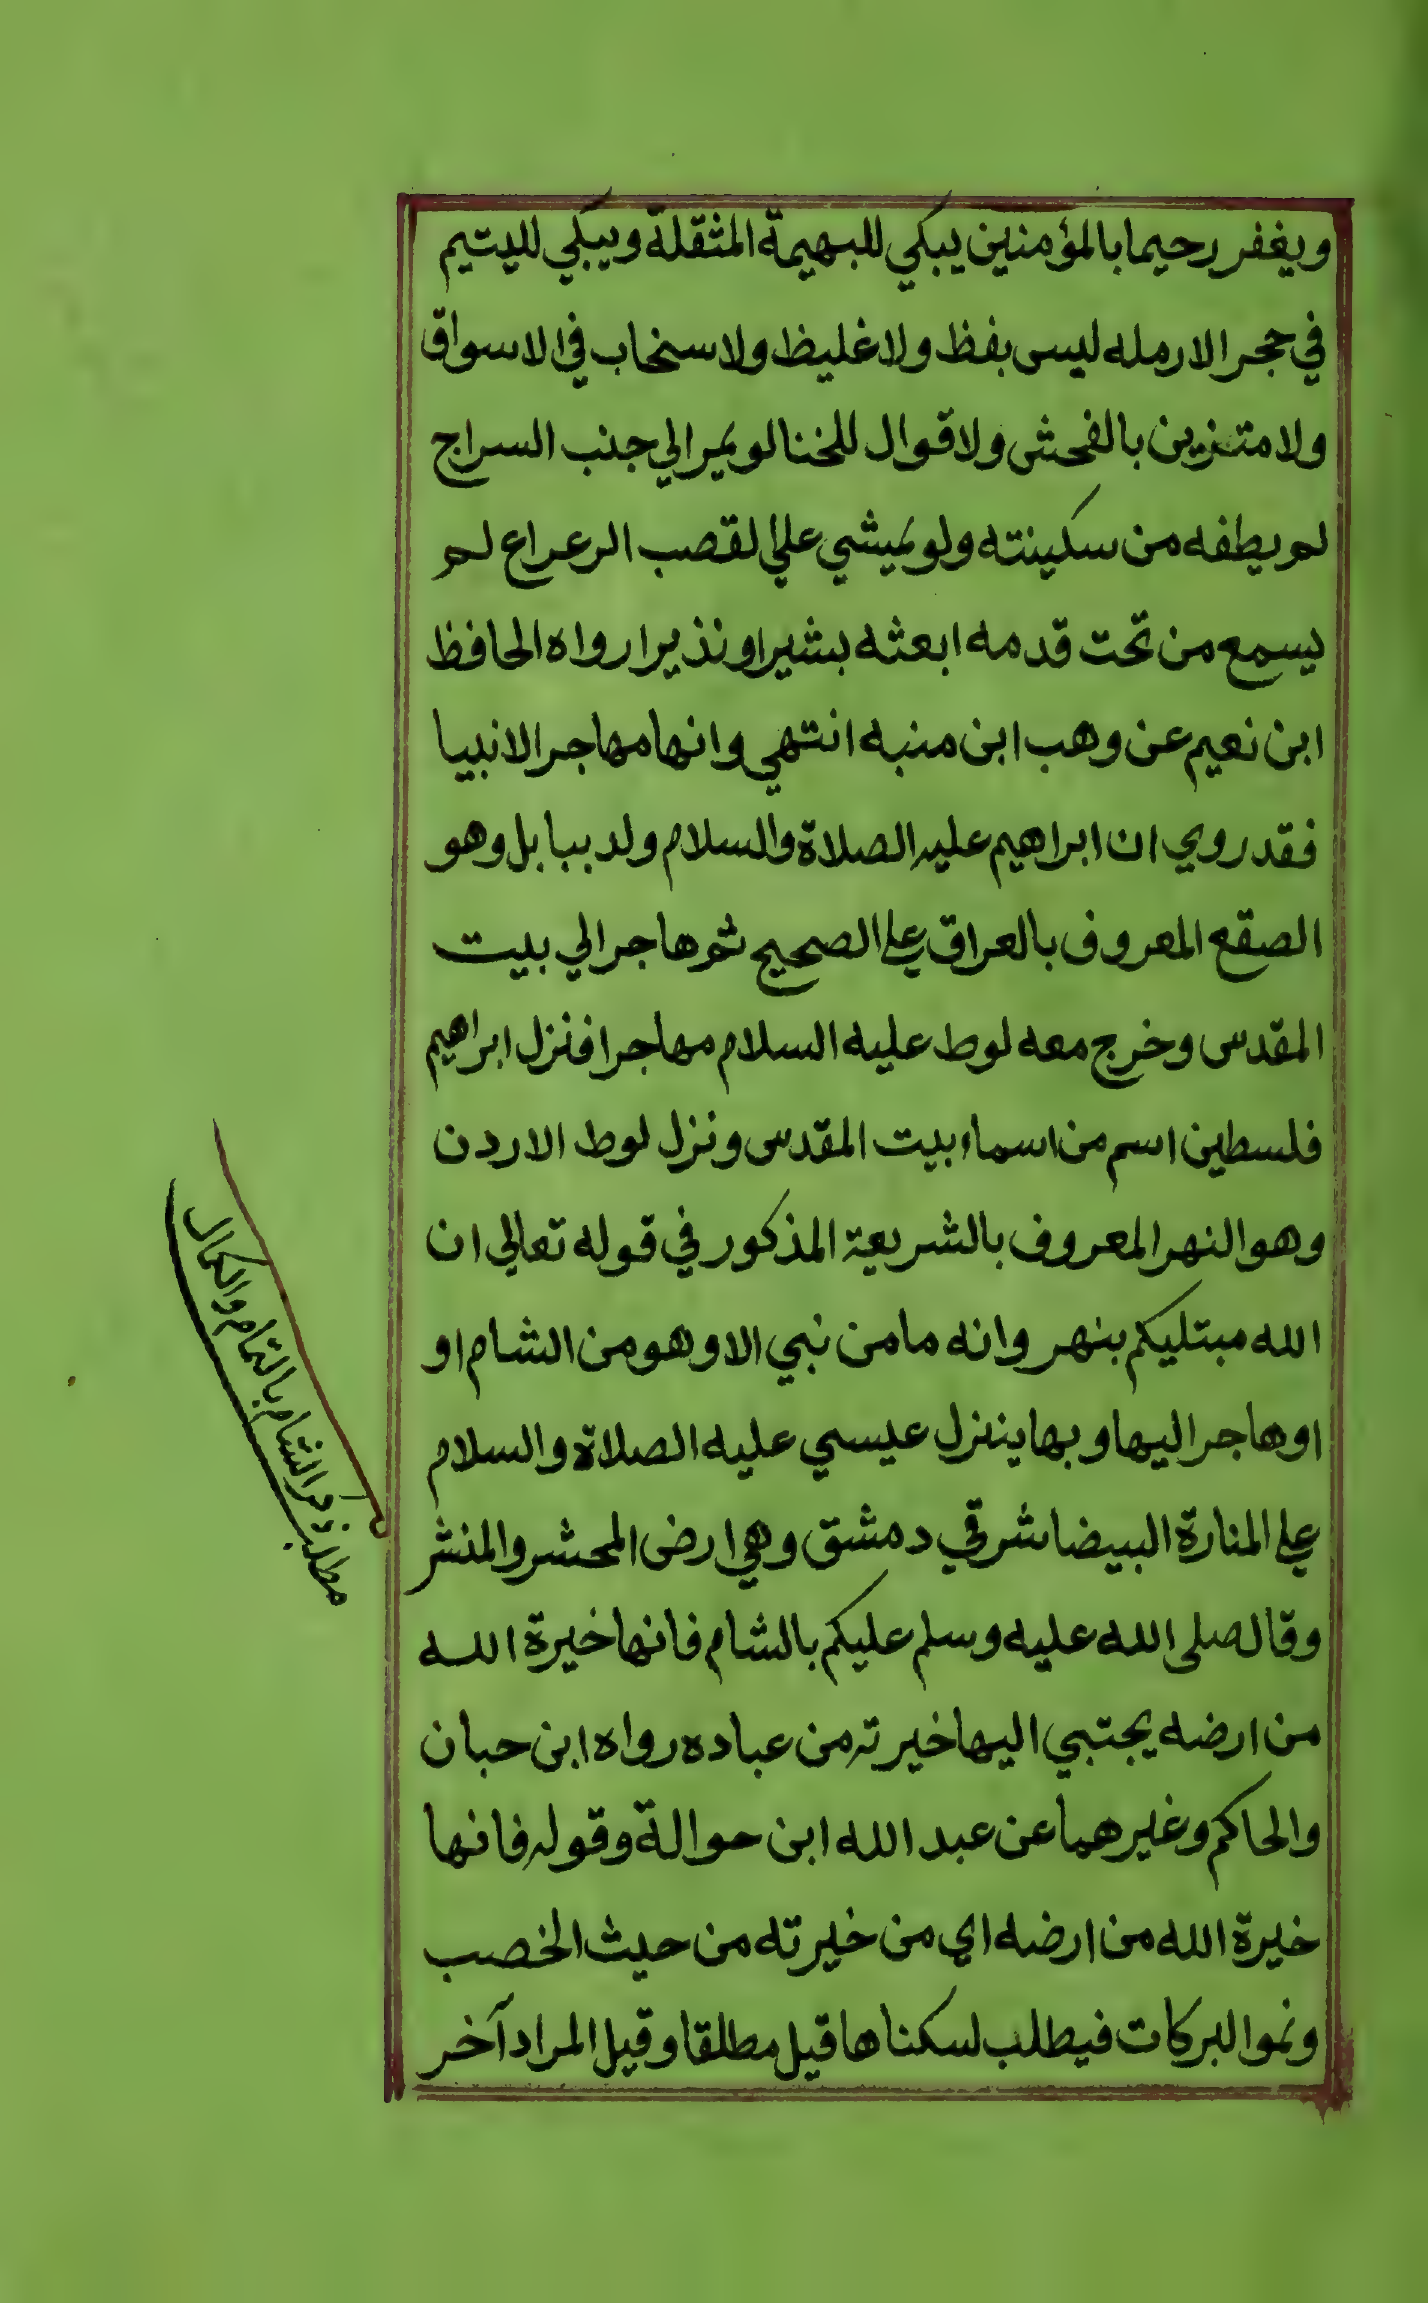 ويغفر رحيما بالمؤمنين يبكي للبهيمة المثقلة ويبكي لليتيم
في حجر الارمله ليس بفظ ولا غليظ ولا سخاب في الاسواق
ولا متزين بالفحش ولا قوال للخنا لو يمر الي جنب السراج
لم يطفه من سكينته ولو يمشي علي القصب الرعراع لم
يسمع من تحت قدمه ابعثه بشيرا ونذيرا رواه الحافظ
ابن نعيم عن وهب ابن منبه انتهي وانها مهاجر الانبيا
فقد روي ان ابراهيم عليه الصلاة والسلام ولد ببابل وهو
الصقع المعروف بالعراق علي الصحيح ثم هاجر الي بيت
المقدس وخرج معه لوط عليه السلام مهاجرا فنزل ابراهيم
فلسطين اسم من اسماء بيت المقدس ونزل لوط الاردن
وهو النهر المعروف بالشريعة المذكور في قوله تعالي ان
الله مبتليكم بنهر وانه ما من نبي الا وهو من الشام او
او هاجر اليها وبها ينزل عيسي عليه الصلاة والسلام
علي المنارة البيضا شرقي دمشق وهي ارض المحشر والمنشر
وقال صلى الله عليه وسلم عليكم بالشام فانها خيرة الله
من ارضه يجتبي اليها خيرته من عباده رواه ابن حبان
والحاكم وغيرهما عن عبد الله ابن حوالة وقوله فانها
خيرة الله من ارضه اي من خيرته من حيث الخصب
ونموا البركات فيطلب لسكناها قيل مطلقا وقيل المراد آخر
مطلب ذكر الشام بالتمام والكمال